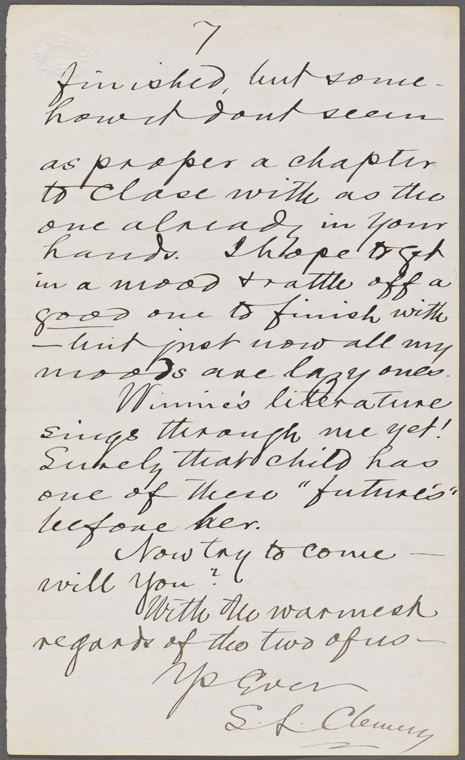 7
finished, but some-
how it dont seem
as proper a chapter
to close with as the
one already in your
hands. I hope to get
in a mood & rattle off a
good one to finish with
—but just now all my
moods are lazy ones.
Winnie's literature
sings through me yet!
Surely that child has
one of these "future's"
before her.
Now try to come —
will you?
With the warmest
regards of the two of us —
Yrs Ever
S. L. Clemens